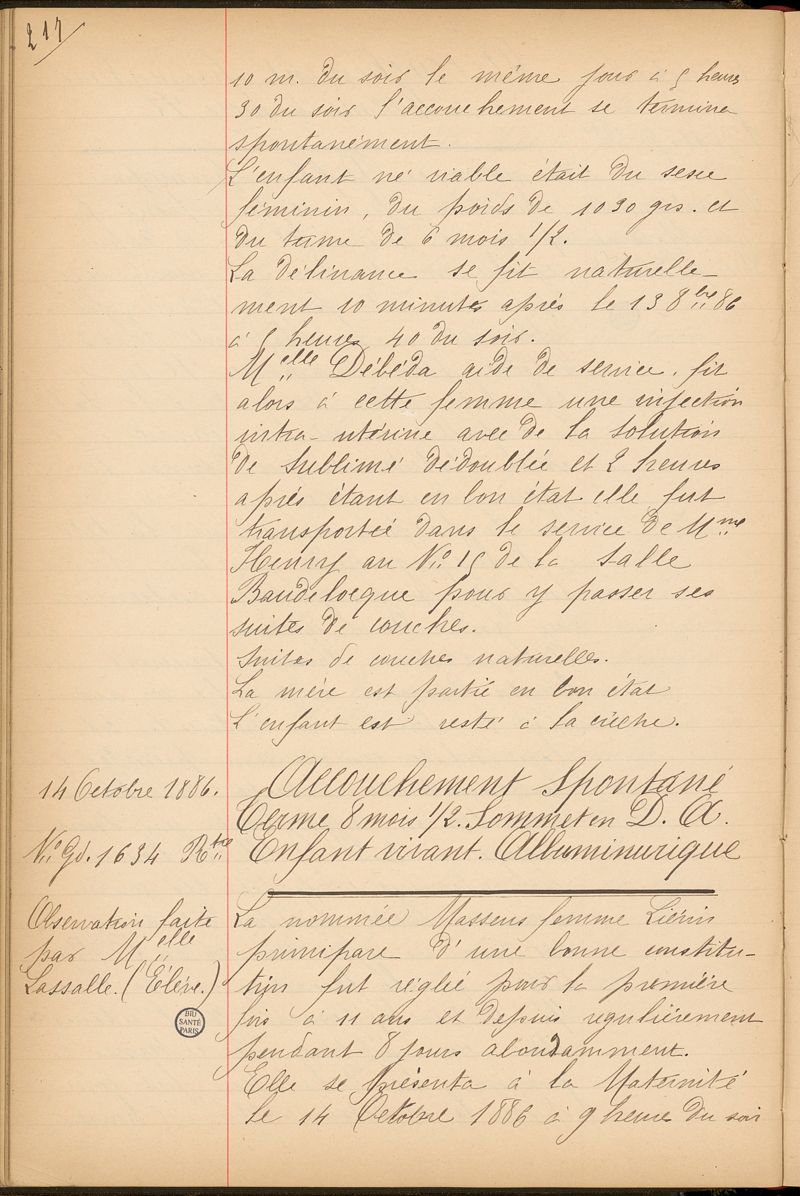 217
10 m. du soir le même jour à 5 heures
30 du soir l'accouchement se termina
spontanément.
L'enfant né viable était du sexe
féminin, du poids de 1030 grs. et
du terme de 6 mois 1/2.
La délivrance se fit naturelle-
ment 10 minutes après le 13 8bre 86
à 5 heures 40 du soir.
Melle Débéda aide de service, fit
alors à cette femme une injection
intra-utérine avec de la solution
de sublimé dédoublée et 2 heures
après étant en bon état elle fut
transportée dans le service de Mme
Henry au No 15 de la salle
Baudelocque pour y passer ses
suites de couches.
Suites de couches naturelles.
La mère est partie en bon état
L'enfant est resté à la crèche.
14 Octobre 1886.
No Gd. 1634 Rtre
Observation faite
par Melle
Lassalle. (Élève.)
BIU
SANTÉ
PARIS
Accouchement Spontané
Terme 8 mois 1/2. Sommet en D. A.
Enfant vivant. Albuminurique
La nommée Massens femme Liénin
primipare d'une bonne constitu-
tion fut réglée pour la première
fois à 11 ans et depuis regulièrement
pendant 8 jours abondamment.
Elle se présenta à la Maternité
le 14 Octobre 1886 à 9 heures du soir